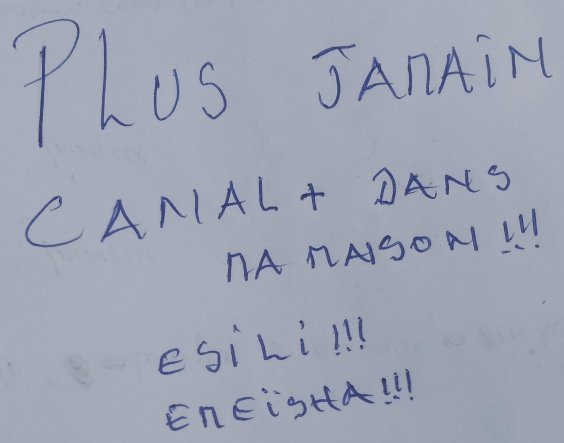 PLUS JAMAIN
CANAL+ DANS
MA MAISON!!!
ESILI!!!
EMEÏSHA!!!